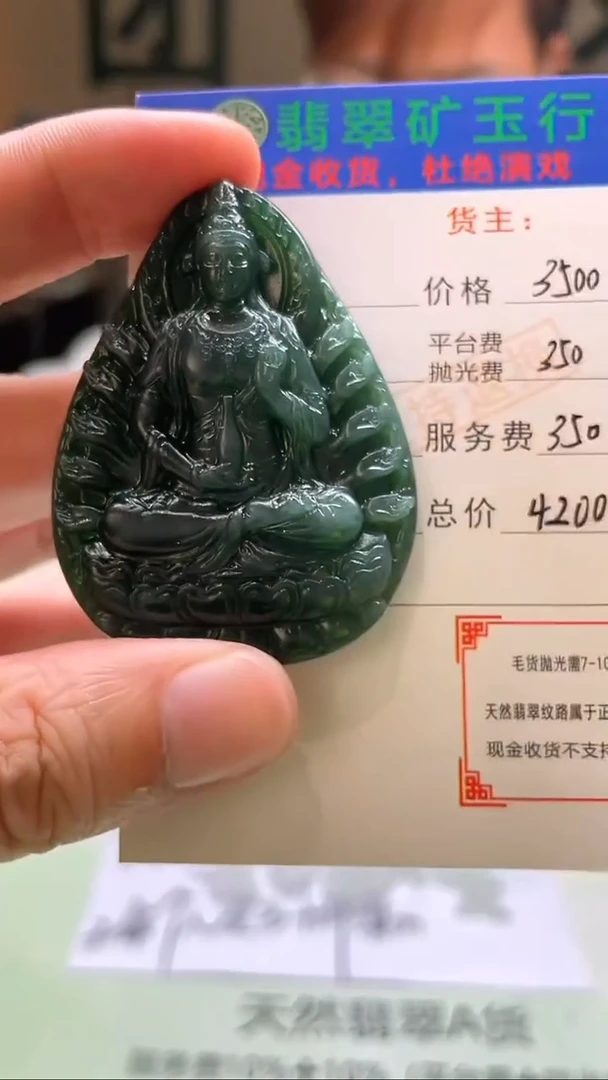 团
翡翠矿玉行
金收货，杜绝演戏
货主：
价格 3500
平台费
抛光费 350
服务费 350
总价 4200
毛货抛光需7-10
天然翡翠纹路属于正
现金收货不支持
天然翡翠A货